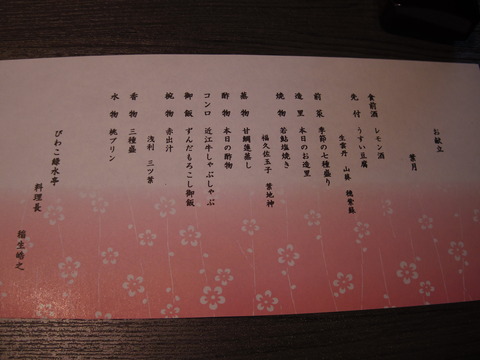 お献立
葉月
食前酒 レモン酒
先付 うすい豆腐
生雲丹 山葵 穂紫蘇
前菜 季節の七種盛り
造里 本日のお造里
焼物 若鮎塩焼き
福久佐玉子 葉地神
蒸物 甘鯛蓮蒸し
酢物 本日の酢物
コンロ 近江牛しゃぶしゃぶ
御飯 ずんだもろこし御飯
椀物 赤出汁
浅利 三ツ葉
香物 三種盛
水物 桃プリン
びわこ緑水亭
料理長 稲生皓之